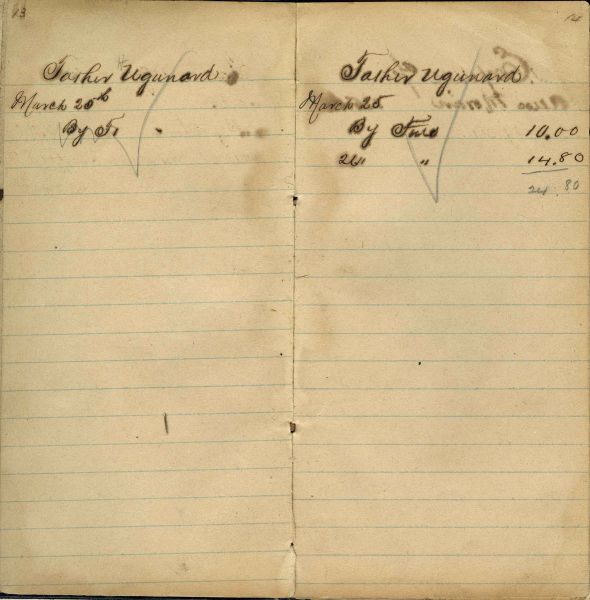 13
Tasher Ugunard
March 25th
By
14
Tasher Ugunard
March 25
By Fine 10.00
26 " 14.80
24 80